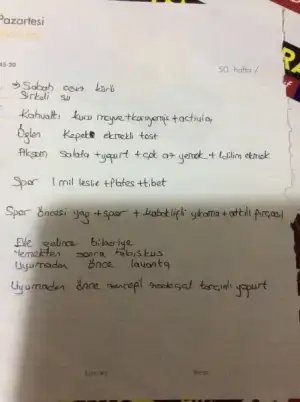 Pazartesi
50 hafta /
→ Sabah
Sirkeli su
Kahvaltı kuru meyve + + activia
Öğlen Kepek ekmekli tost
Akşam Salata + yogurt + çok az yemek + 1 dilim ekmek
Spor 1 mil leslie + plates + tibet
Spor Öncesi yağ + spor + kabak lifli yıkama + fırçası
Eve gelince biberiye
Yemekten sonra hibiskus
Uyumadan önce lavanta
Uyumadan önce tarçınlı yogurt